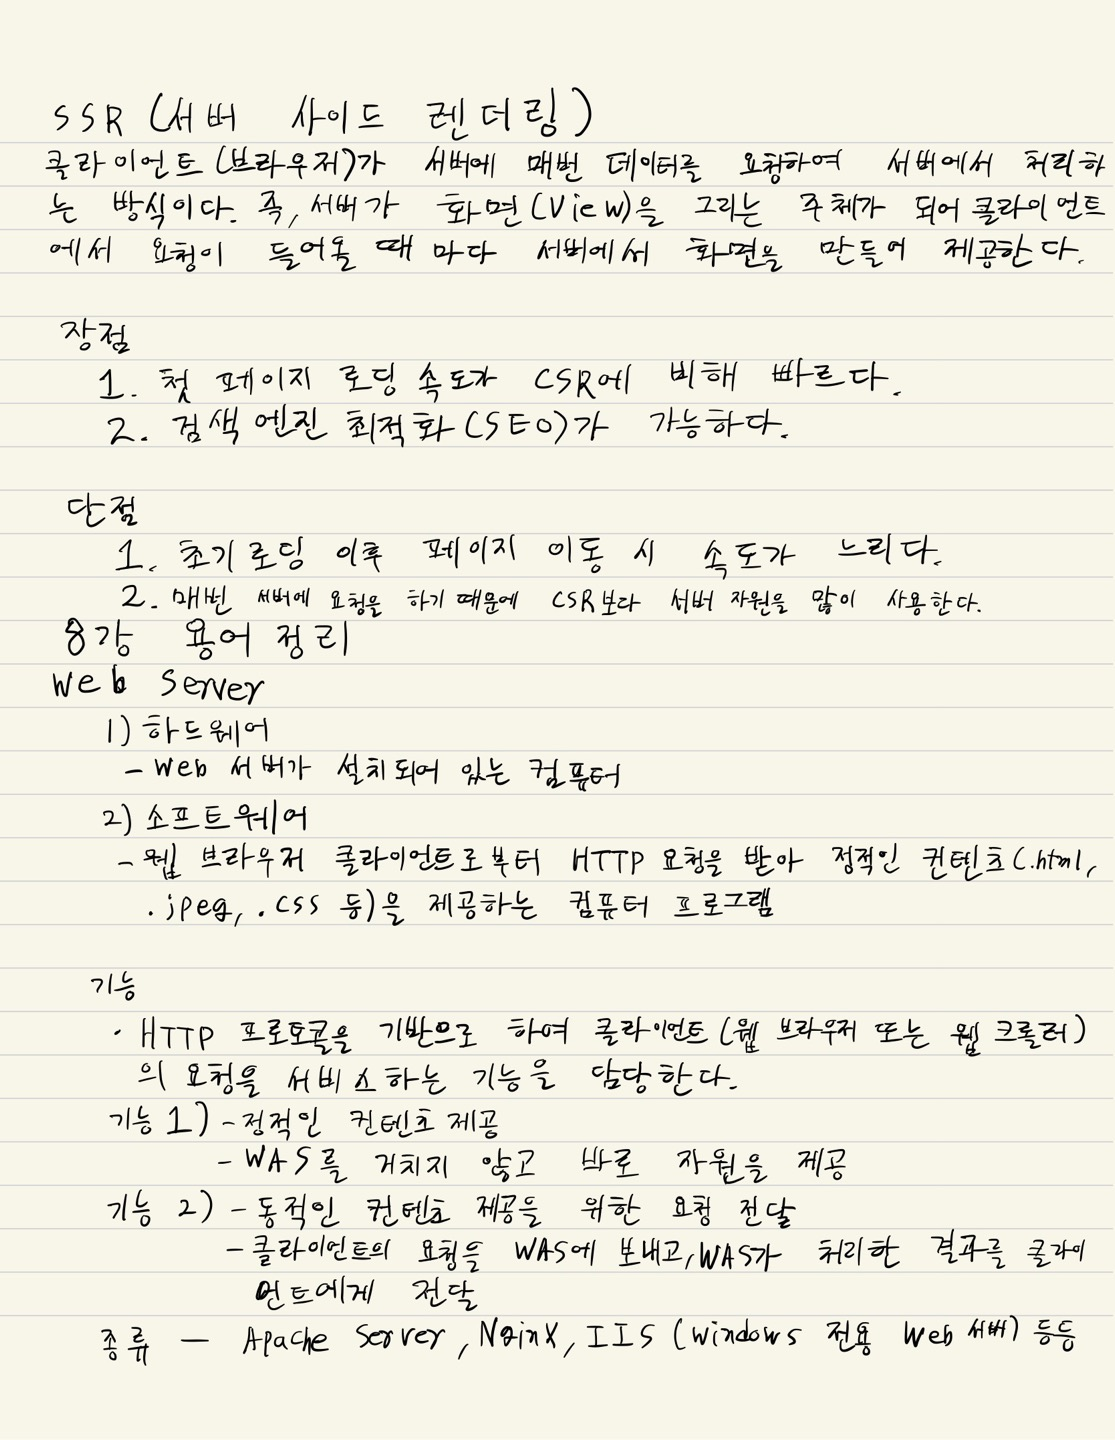 SSR (서버 사이드 렌더링)
클라이언트(브라우저)가 서버에 매번 데이터를 요청하여 서버에서 처리하
는 방식이다. 즉, 서버가 화면(View)을 그리는 주체가 되어 클라이언트
에서 요청이 들어올 때 마다 서버에서 화면을 만들어 제공한다.
장점
1. 첫 페이지 로딩 속도가 CSR에 비해 빠르다.
2. 검색 엔진 최적화(SEO)가 가능하다.
단점
1. 초기로딩 이후 페이지 이동 시 속도가 느리다.
2. 매번 서버에 요청을 하기 때문에 CSR보다 서버 자원을 많이 사용한다.
8강 용어 정리
Web Server
1) 하드웨어
- Web 서버가 설치되어 있는 컴퓨터
2) 소프트웨어
- 웹 브라우저 클라이언트로부터 HTTP 요청을 받아 정적인 컨텐츠(.html,
.jpeg, .css 등)을 제공하는 컴퓨터 프로그램
기능
· HTTP 프로토콜을 기반으로 하여 클라이언트(웹 브라우저 또는 웹 크롤러)
의 요청을 서비스하는 기능을 담당한다.
기능 1) - 정적인 컨텐츠 제공
- WAS를 거치지 않고 바로 자원을 제공
기능 2) - 동적인 컨텐츠 제공을 위한 요청 전달
- 클라이언트의 요청을 WAS에 보내고, WAS가 처리한 결과를 클라이
언트에게 전달
종류 - Apache Server, Nginx, IIS (Windows 전용 Web 서버) 등등